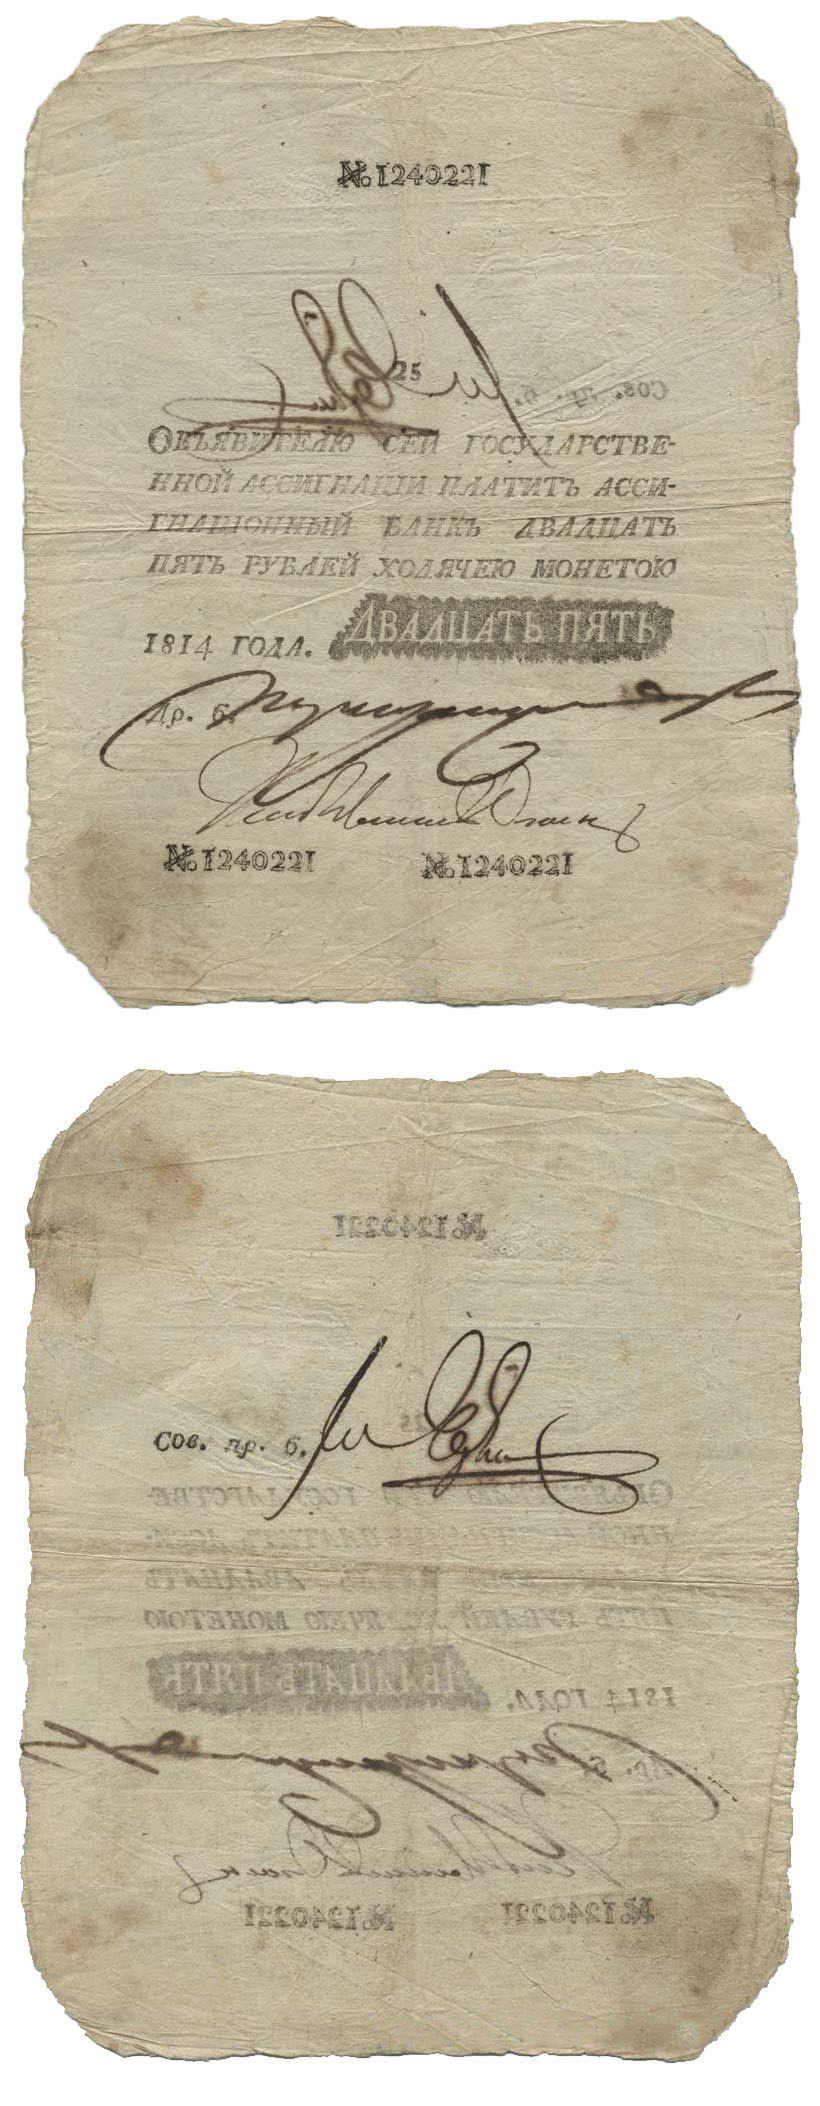 №. 1240221
25
Объявителю сей государстве-
нной ассигнации платитъ асси-
гнационный банкъ двадцать
пять рублей ходячею монетою
1814 года. ДВАДЦАТЬ ПЯТЬ
Др. б.
№. 1240221 №. 1240221
Сов. пр. б.